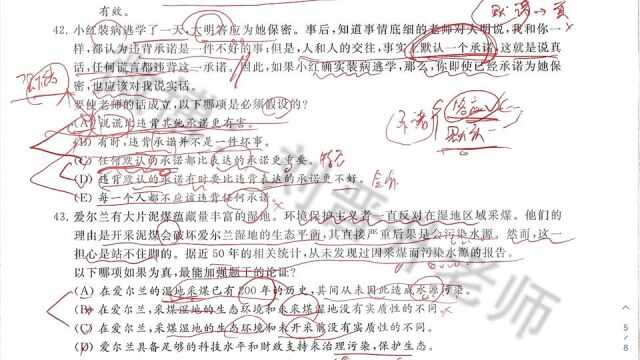 有效。
默诺→真
42. 小红装病逃学了一天，大明答应为她保密。事后，知道事情底细的老师对大明说，我和你一
样，都认为违背承诺是一件不好的事；但是，人和人的交往，事实上默认一个承诺，这就是说真
话，任何谎言都违背这一承诺。因此，如果小红确实装病逃学，那么，你即使已经承诺为她保
密，也应该对我说实话。
要使老师的话成立，以下哪项是必须假设的？
(A) 说谎比违背其他承诺更有害。
(B) 有时，违背承诺并不是一件坏事。
(C) 任何默认的承诺都比表达的承诺更重要。
(D) 违背默认的承诺有时要比违背表达的承诺更不好。
(E) 每一个人都不应该违背任何承诺。
承诺
答应
默认
43. 爱尔兰有大片泥煤蕴藏量丰富的湿地。环境保护主义者一直反对在湿地区域采煤。他们的
理由是开采泥煤会破坏爱尔兰湿地的生态平衡，其直接严重后果是会污染水源。然而，这一
担心是站不住脚的。据近 50 年的相关统计，从未发现过因采煤而污染水源的报告。
以下哪项如果为真，最能加强题干的论证？
(A) 在爱尔兰的湿地采煤已有 200 年的历史，其间从未因此造成水源污染。
(B) 在爱尔兰，采煤湿地的生态环境和未采煤湿地没有实质性的不同。
(C) 在爱尔兰，采煤湿地的生态环境和未开采前没有实质性的不同。
(D) 爱尔兰具备足够的科技水平和财政支持来治理污染，保护生态。
5/8